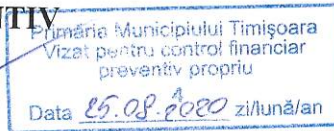 TIV
Primăria Municipiului Timişoara
Vizat pentru control financiar
preventiv propriu
Data 25.08.2020 zi/lună/an